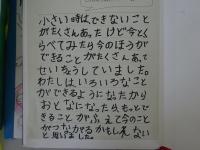 小さい時は、できないこと
がたくさんあったけど今とく
らべてみたら今のほうが
できることがたくさんあって
せいちょうしていました。
わたしはいろいろなこと
ができるようになったから
おとなになったら、もっとで
きることがふえて今のこと
がつながるかもしれない
と思いました。